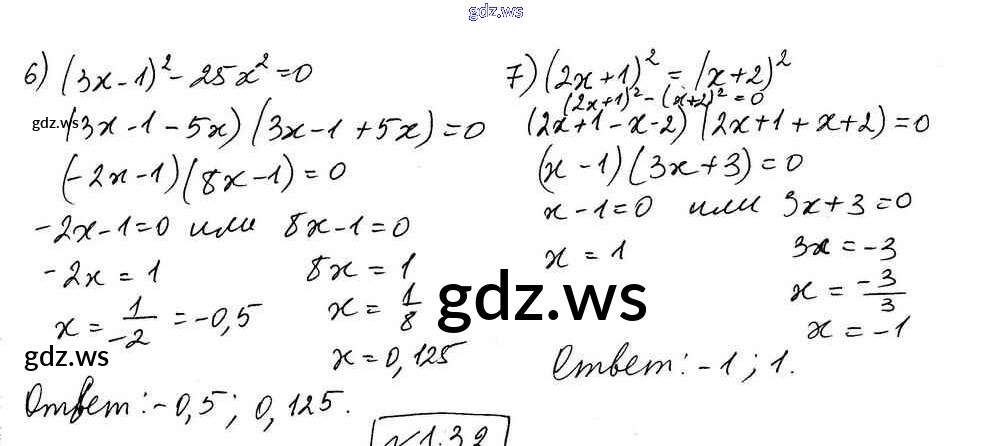 gdz.ws
6) (3x-1)² - 25x² = 0
gdz.ws (3x-1-5x)(3x-1+5x)=0
(-2x-1)(8x-1)=0
-2x-1=0 или 8x-1=0
-2x = 1 8x = 1
x = 1/-2 = -0,5 x = 1/8
gdz.ws x = 0,125
Ответ: -0,5; 0,125.
7) (2x+1)² = (x+2)²
(2x+1)² - (x+2)² = 0
(2x+1-x-2)(2x+1+x+2)=0
(x-1)(3x+3)=0
x-1=0 или 3x+3=0
x = 1 3x = -3
gdz.ws x = -3/3
x = -1
Ответ: -1; 1.
№1.39